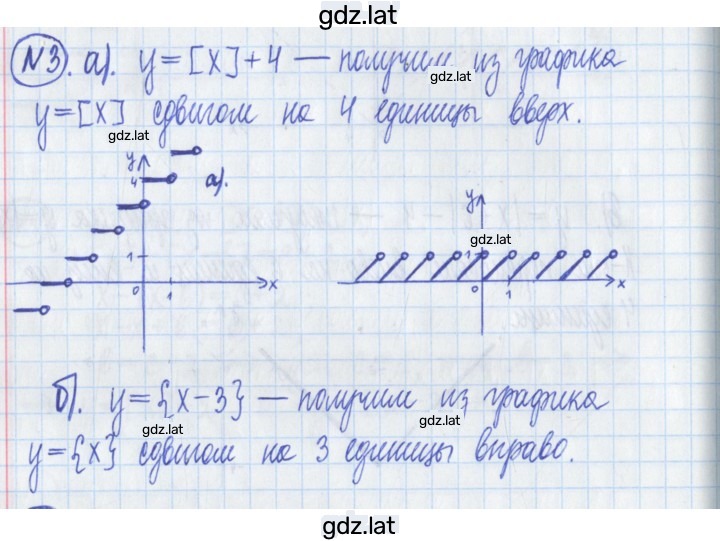 gdz.lat
№3. а). y=[x]+4 — получим из графика
gdz.lat
y=[x] сдвигом на 4 единицы вверх.
gdz.lat
y
4
а).
1
0
1
x
y
gdz.lat
1
0
1
x
б). y={x-3} — получим из графика
gdz.lat
gdz.lat
y={x} сдвигом на 3 единицы вправо.
gdz.lat
gdz.lat